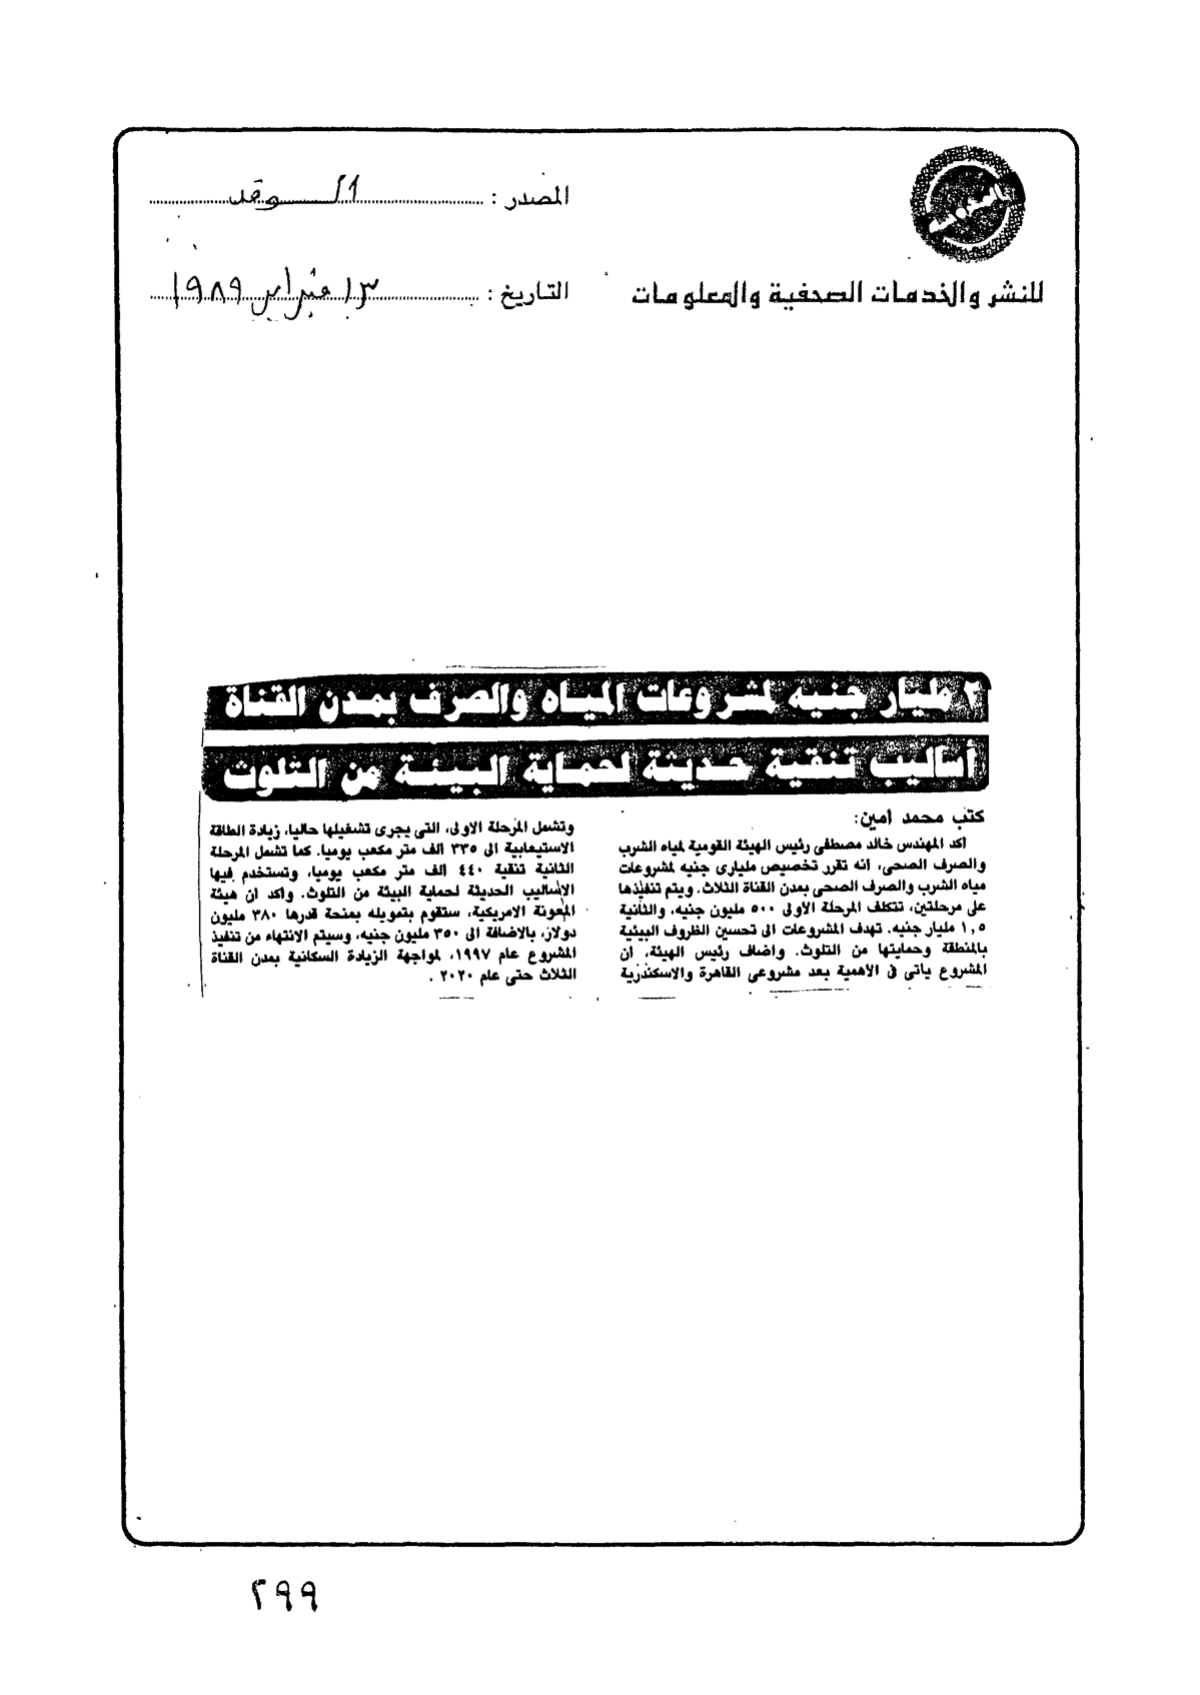 المصدر : الوفد
للنشر والخدمات الصحفية والمعلومات
التاريخ : ١٣ فبراير ١٩٨٩
٢ مليار جنيه لمشروعات المياه والصرف بمدن القناة
أساليب تنقية حديثة لحماية البيئة من التلوث
كتب محمد أمين:
اكد المهندس خالد مصطفى رئيس الهيئة القومية لمياه الشرب
والصرف الصحى، انه تقرر تخصيص مليارى جنيه لمشروعات
مياه الشرب والصرف الصحى بمدن القناة الثلاث. ويتم تنفيذها
على مرحلتين، تتكلف المرحلة الاولى ٥٠٠ مليون جنيه، والثانية
١,٥ مليار جنيه. تهدف المشروعات الى تحسين الظروف البيئية
بالمنطقة وحمايتها من التلوث. واضاف رئيس الهيئة، ان
المشروع ياتى فى الاهمية بعد مشروعى القاهرة والاسكندرية
وتشمل المرحلة الاولى، التى يجرى تشغيلها حاليا، زيادة الطاقة
الاستيعابية الى ٣٣٥ الف متر مكعب يوميا. كما تشمل المرحلة
الثانية تنقية ٤٤٠ الف متر مكعب يوميا، وتستخدم فيها
الاساليب الحديثة لحماية البيئة من التلوث. واكد ان هيئة
المعونة الامريكية، ستقوم بتمويله بمنحة قدرها ٣٨٠ مليون
دولار، بالاضافة الى ٣٥٠ مليون جنيه، وسيتم الانتهاء من تنفيذ
المشروع عام ١٩٩٧، لمواجهة الزيادة السكانية بمدن القناة
الثلاث حتى عام ٢٠٢٠ .
٢٩٩